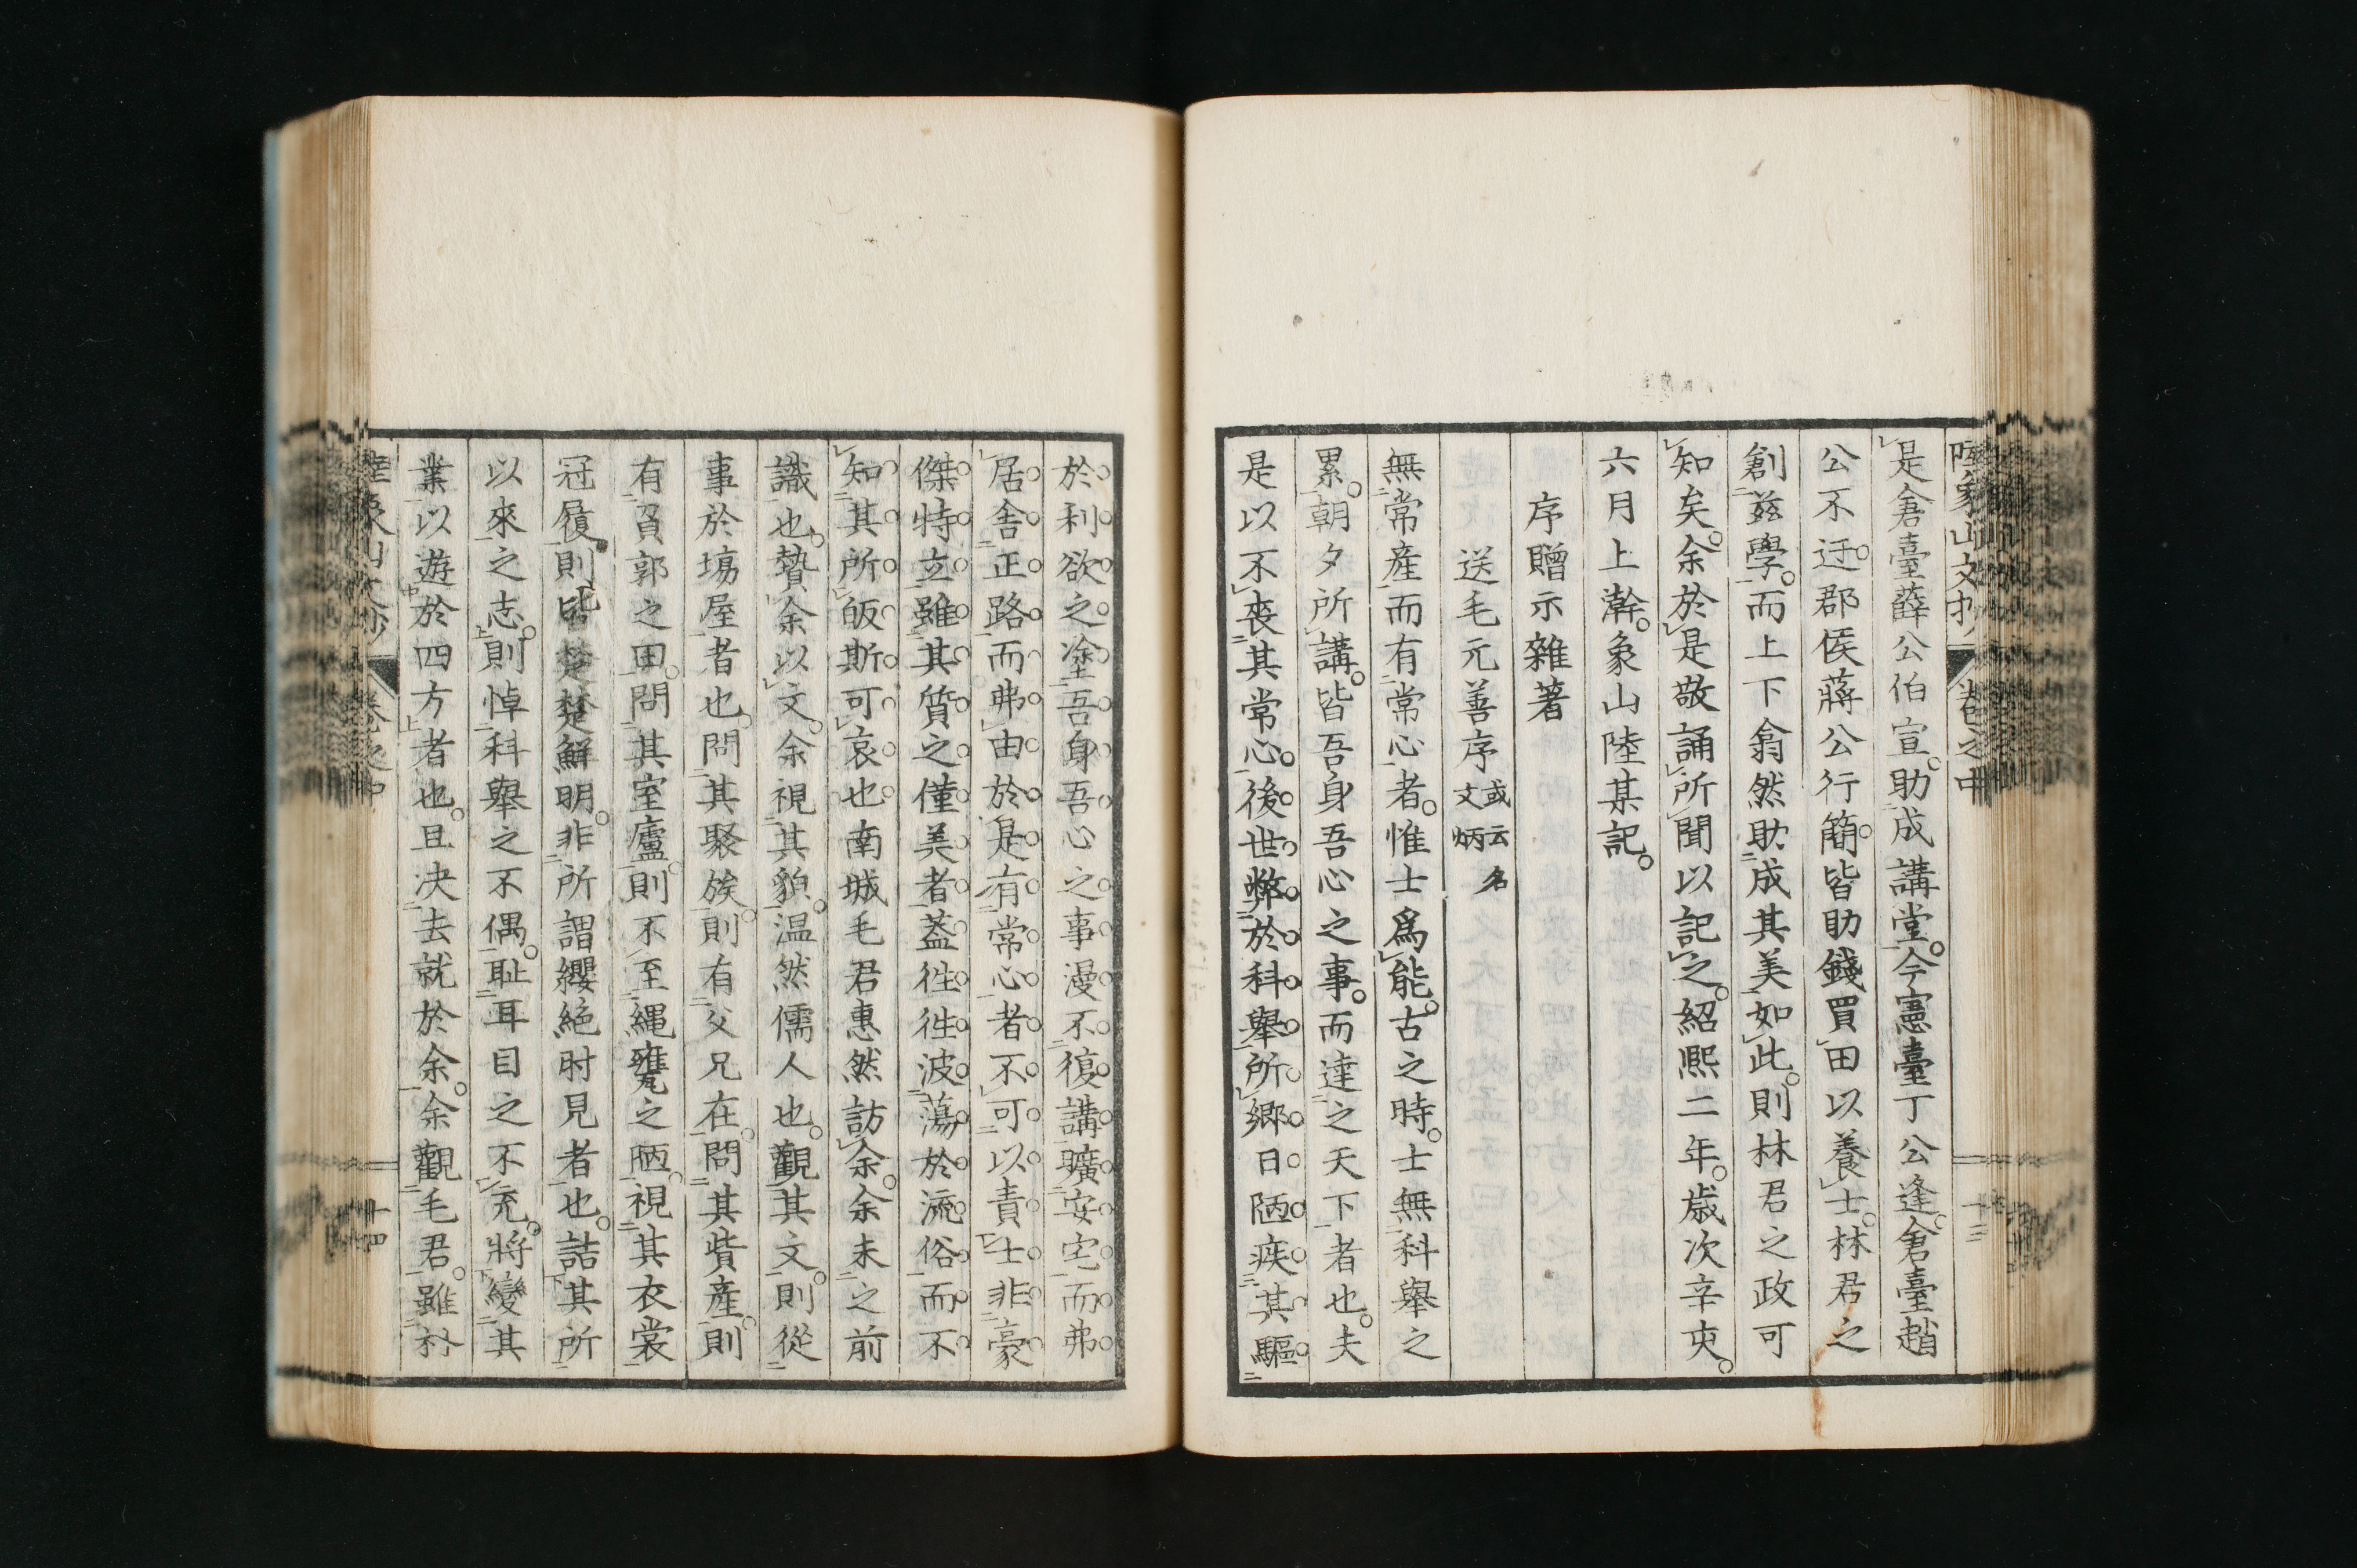 陸象山文抄 卷之中 十三
是倉臺薛公伯宣助成講堂。今憲臺丁公逢。倉臺趙
公不迂。郡侯蔣公行簡。皆助錢買田以養士。林君之
創茲學。而上下翕然助成其美如此。則林君之政可
知矣。余於是敬誦所聞以記之。紹熙二年。歲次辛亥。
六月上澣。象山陸某記。
序贈示雜著
送毛元善序 或云名文炳
無常產而有常心者。惟士爲能。古之時。士無科舉之
累。朝夕所講。皆吾身吾心之事。而達之天下者也。夫
是以不喪其常心。後世弊於科舉。所鄉日陋。疾其驅
於利欲之塗。吾身吾心之事漫不復講。曠安宅而弗
居。舍正路而弗由。於是有常心者不可以責士。非豪
傑特立。雖其質之僅美者。蓋徃徃波蕩於流俗。而不
知其所皈。斯可哀也。南城毛君惠然訪余。余未之前
識也。贄余以文。余視其貌。温然儒人也。觀其文。則從
事於塲屋者也。問其聚族。則有父兄在。問其貲產。則
有負郭之田。問其室廬。則不至繩甕之陋。視其衣裳
冠履。則皆楚楚鮮明。非所謂纓絕肘見者也。詰其所
以來之志。則悼科舉之不偶。耻耳目之不充。將變其
業以遊於四方者也。且决去就於余。余觀毛君。雖衿
陸象山文抄 卷之中 十四